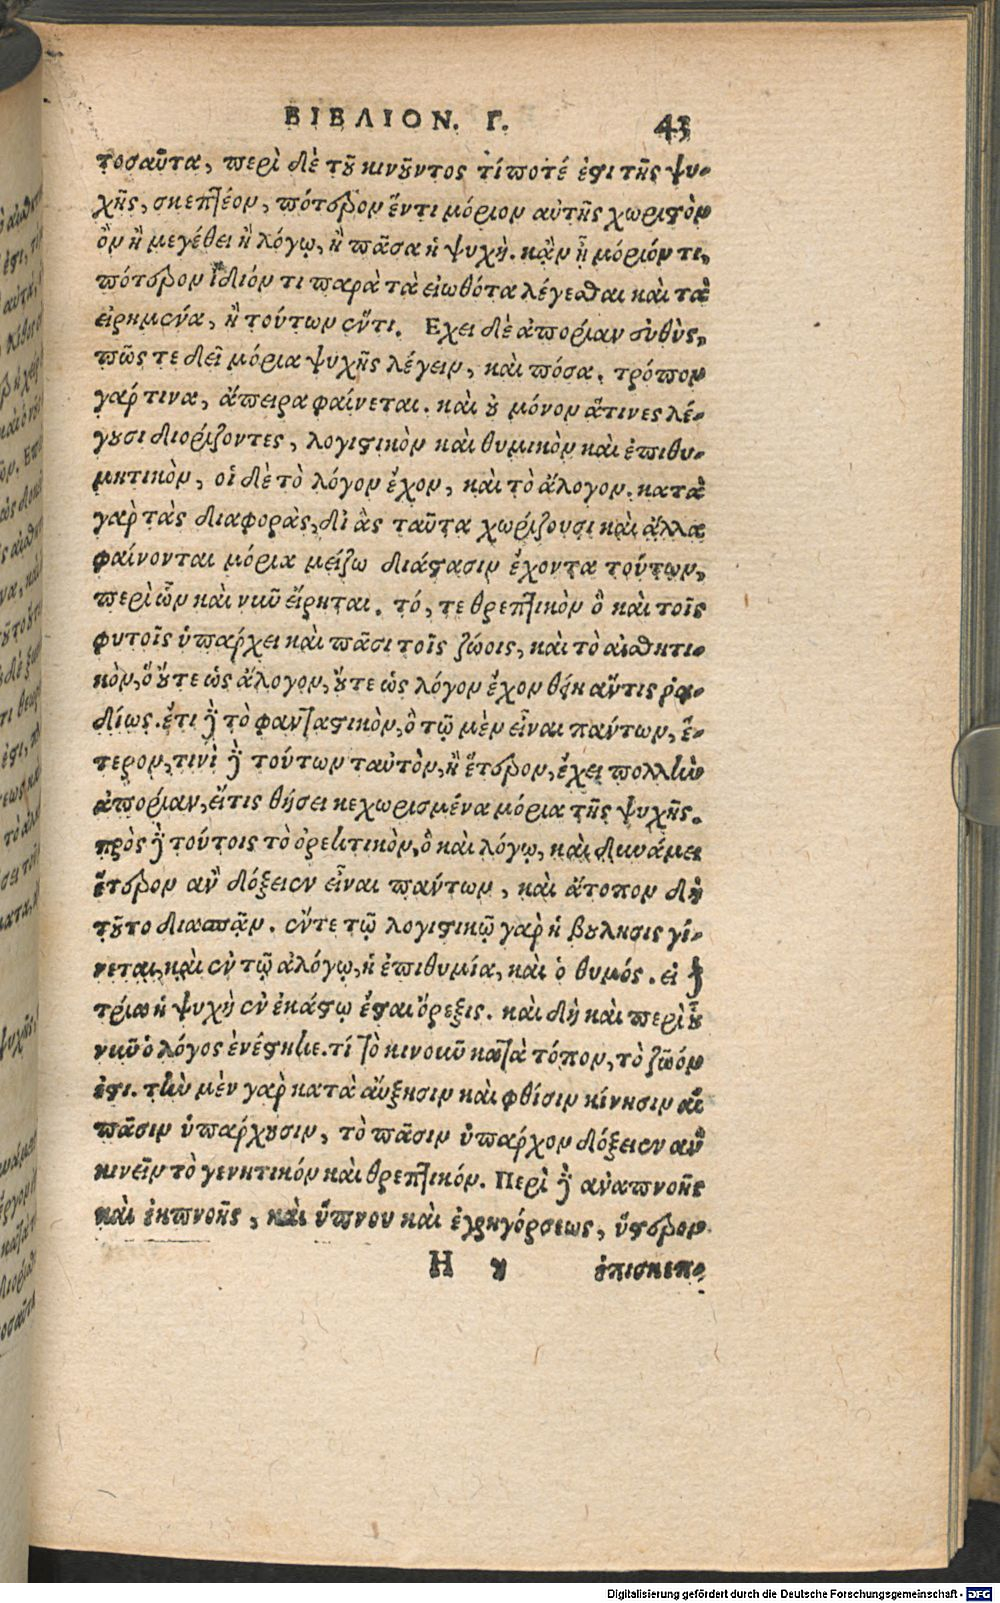 ΒΙΒΛΙΟΝ. Γ. 43
τοσαῦτα, περὶ δὲ τοῦ κινοῦντος τί ποτέ ἐστι τῆς ψυ-
χῆς, σκεπτέον, πότερον ἕν τι μόριον αὐτῆς χωριστὸν
ὂν ἢ μεγέθει ἢ λόγῳ, ἢ πᾶσα ἡ ψυχή. κἂν ᾖ μόριόν τι,
πότερον ἴδιόν τι παρὰ τὰ εἰωθότα λέγεσθαι καὶ τὰ
εἰρημένα, ἢ τούτων ἕν τι. Εχει δὲ ἀπορίαν εὐθὺς,
πῶς τε δεῖ μόρια ψυχῆς λέγειν, καὶ πόσα. τρόπον
γάρ τινα, ἄπειρα φαίνεται. καὶ οὐ μόνον ἅ τινες λέ-
γουσι διορίζοντες, λογιστικὸν καὶ θυμικὸν καὶ ἐπιθυ-
μητικὸν, οἱ δὲ τὸ λόγον ἔχον, καὶ τὸ ἄλογον. κατὰ
γὰρ τὰς διαφορὰς, δι ἃς ταῦτα χωρίζουσι καὶ ἄλλα
φαίνονται μόρια μείζω διάστασιν ἔχοντα τούτων,
περὶ ὧν καὶ νῦν εἴρηται. τό, τε θρεπτικὸν ὃ καὶ τοῖς
φυτοῖς ὑπάρχει καὶ πᾶσι τοῖς ζώοις, καὶ τὸ αἰσθητι-
κὸν, ὃ οὔτε ὡς ἄλογον, οὔτε ὡς λόγον ἔχον θείη ἄν τις ῥα-
δίως. ἔτι δὲ τὸ φανταστικὸν, ὃ τῷ μὲν εἶναι πάντων, ἕ-
τερον, τινὶ δὲ τούτων ταὐτὸν, ἢ ἕτερον, ἔχει πολλὴν
ἀπορίαν, εἴ τις θήσει κεχωρισμένα μόρια τῆς ψυχῆς.
πρὸς δὲ τούτοις τὸ ὀρεκτικὸν, ὃ καὶ λόγῳ, καὶ δυνάμει
ἕτερον ἂν δόξειεν εἶναι πάντων, καὶ ἄτοπον δὴ
τοῦτο διασπᾶν. ἔν τε τῷ λογιστικῷ γὰρ ἡ βούλησις γί-
νεται, καὶ ἐν τῷ ἀλόγῳ, ἡ ἐπιθυμία, καὶ ὁ θυμός. εἰ δὲ
τρία ἡ ψυχὴ ἐν ἑκάστῳ ἔσται ὄρεξις. καὶ δὴ καὶ περὶ οὗ
νῦν ὁ λόγος ἐνέστηκε. τί τὸ κινοῦν κατὰ τόπον, τὸ ζῶόν
ἐστι. τὴν μὲν γὰρ κατὰ αὔξησιν καὶ φθίσιν κίνησιν ἅ
πᾶσιν ὑπάρχουσιν, τὸ πᾶσιν ὑπάρχον δόξειεν ἂν
κινεῖν τὸ γενητικόν καὶ θρεπτικόν. Περὶ δὲ ἀναπνοῆς
καὶ ἐκπνοῆς, καὶ ὕπνου καὶ ἐγρηγόρσεως, ὕστερον
Η υ ἐπισκεπ-
Digitalisierung gefördert durch die Deutsche Forschungsgemeinschaft - DFG